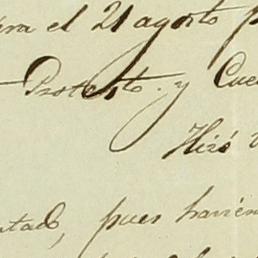 el 21 agosto p
Protesto. y Cue
Hizó
tado, pues havien